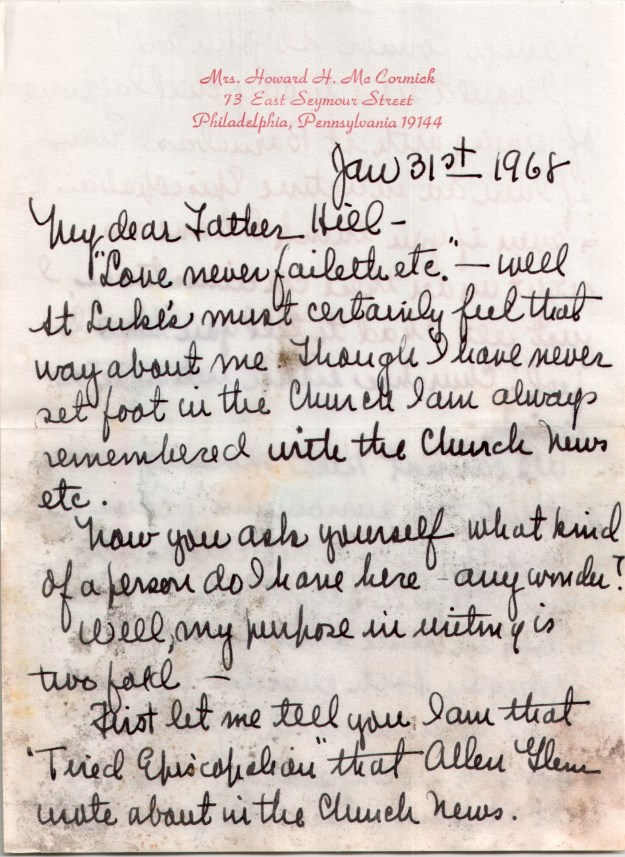 Mrs. Howard H. Mc Cormick
73 East Seymour Street
Philadelphia, Pennsylvania 19144
Jan 31st 1968
My dear Father Hill -
"Love never faileth etc." - well
St Luke's must certainly feel that
way about me. Though I have never
set foot in the Church I am always
remembered with the Church News
etc.
Now you ask yourself what kind
of a person do I have here - any wonder?
Well, my purpose in writing is
two fold -
First let me tell you, I am that
"Tired Episcopalian" that Allen
wrote about in the Church News.